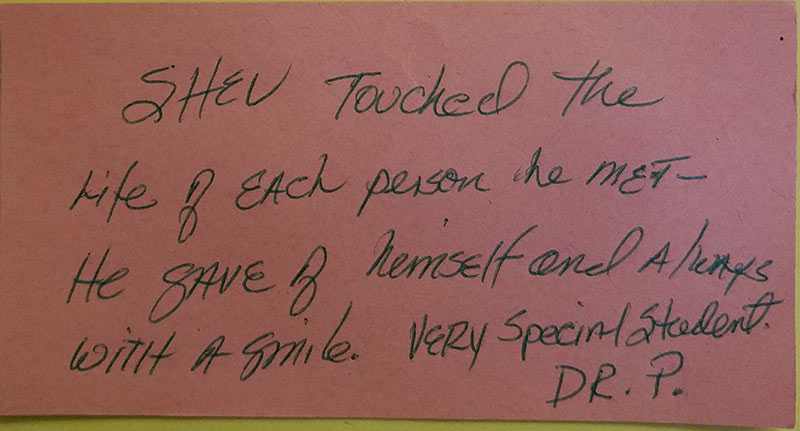 SHEV Touched the
Life of EACh person he MET—
He gAVE of himself and Always
WITH A Smile. VERY Special Student.
DR. P.